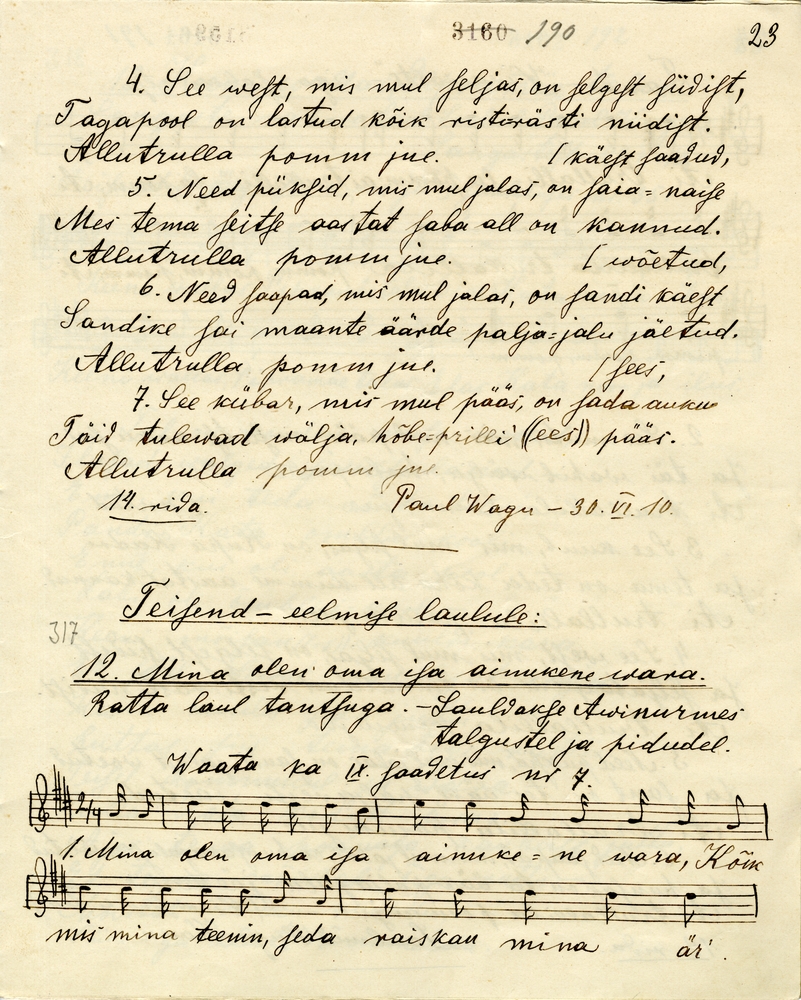 3160 190 23
4. See west, mis mul seljas, on selgest siidist,
Tagapool on lastud kõik risti-rästi niidist.
Allutrulla pomm jne. [käest saadud,
5. Need püksid, mis mul jalas, on saia=naise
Mes tema seitse aastat saba all on kannud.
Allutrulla pomm jne. [wõetud,
6. Need saapad, mis mul jalas, on sandi käest
Sandike sai maante äärde palja=jalu jäetud.
Allutrulla pomm jne. [sees,
7. See kübar, mis mul pääs, on sada auku
Täid tulewad wälja, hõbe=prilli ((ees)) pääs.
Allutrulla pomm jne.
14. rida. Paul Wagu – 30. VI. 10.
Teisend – eelmise laulule:
317
12. Mina olen oma isa ainukene wara.
Ratta laul tantsuga. – Lauldakse Awinurmes
talgustel ja pidudel.
Waata ka IX. saadetus nr 7.
2/4
1. Mina olen oma isa ainuke=ne wara, Kõik
mis mina teenin, seda raiskan mina är'.